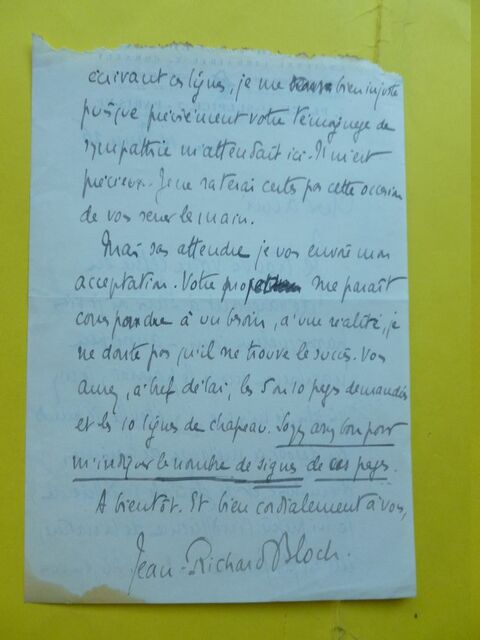 écrivant ces lignes, je me trouve bien injuste
puisque précisément votre témoignage de
sympathie m'attendait ici. Il m'est
précieux. Je ne raterai certes pas cette occasion
de vous serrer la main.
Mais sans attendre je vous envoie mon
acceptation. Votre projet me paraît
correspondre à un besoin, à une réalité, je
ne doute pas qu'il ne trouve le succès. Vous
aurez, à bref délai, les 5 ou 10 pages demandées
et les 10 lignes de chapeau. Soyez assez bon pour
m'indiquer le nombre de signes de ces pages.
A bientôt. Et bien cordialement à vous,
Jean-Richard Bloch.